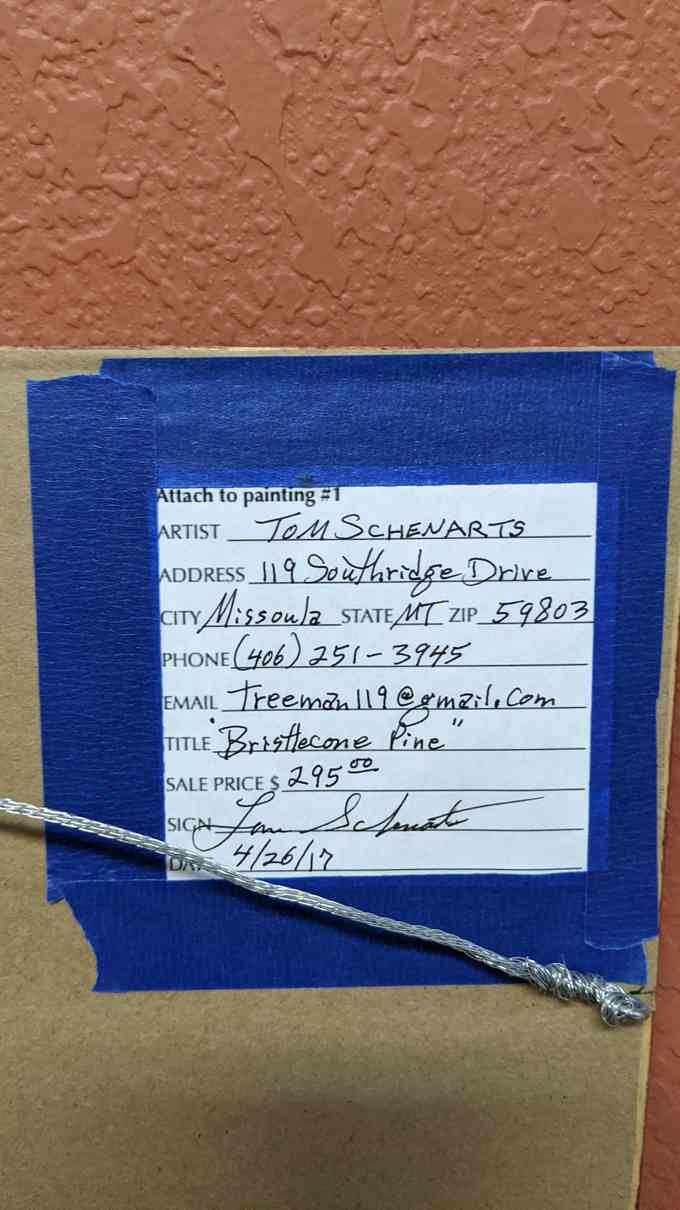 Attach to painting #1
ARTIST TOM SCHENARTS
ADDRESS 119 Southridge Drive
CITY Missoula STATE MT ZIP 59803
PHONE (406) 251-3945
EMAIL treeman119@gmail.com
TITLE "Bristlecone Pine"
SALE PRICE $ 295 00
SIGN Tom Schenarts
DA 4/26/17